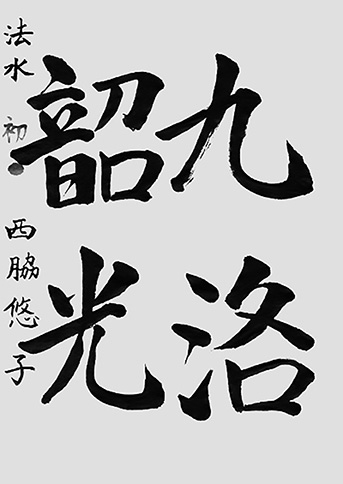 九洛
韶光
法水 初 西脇悠子